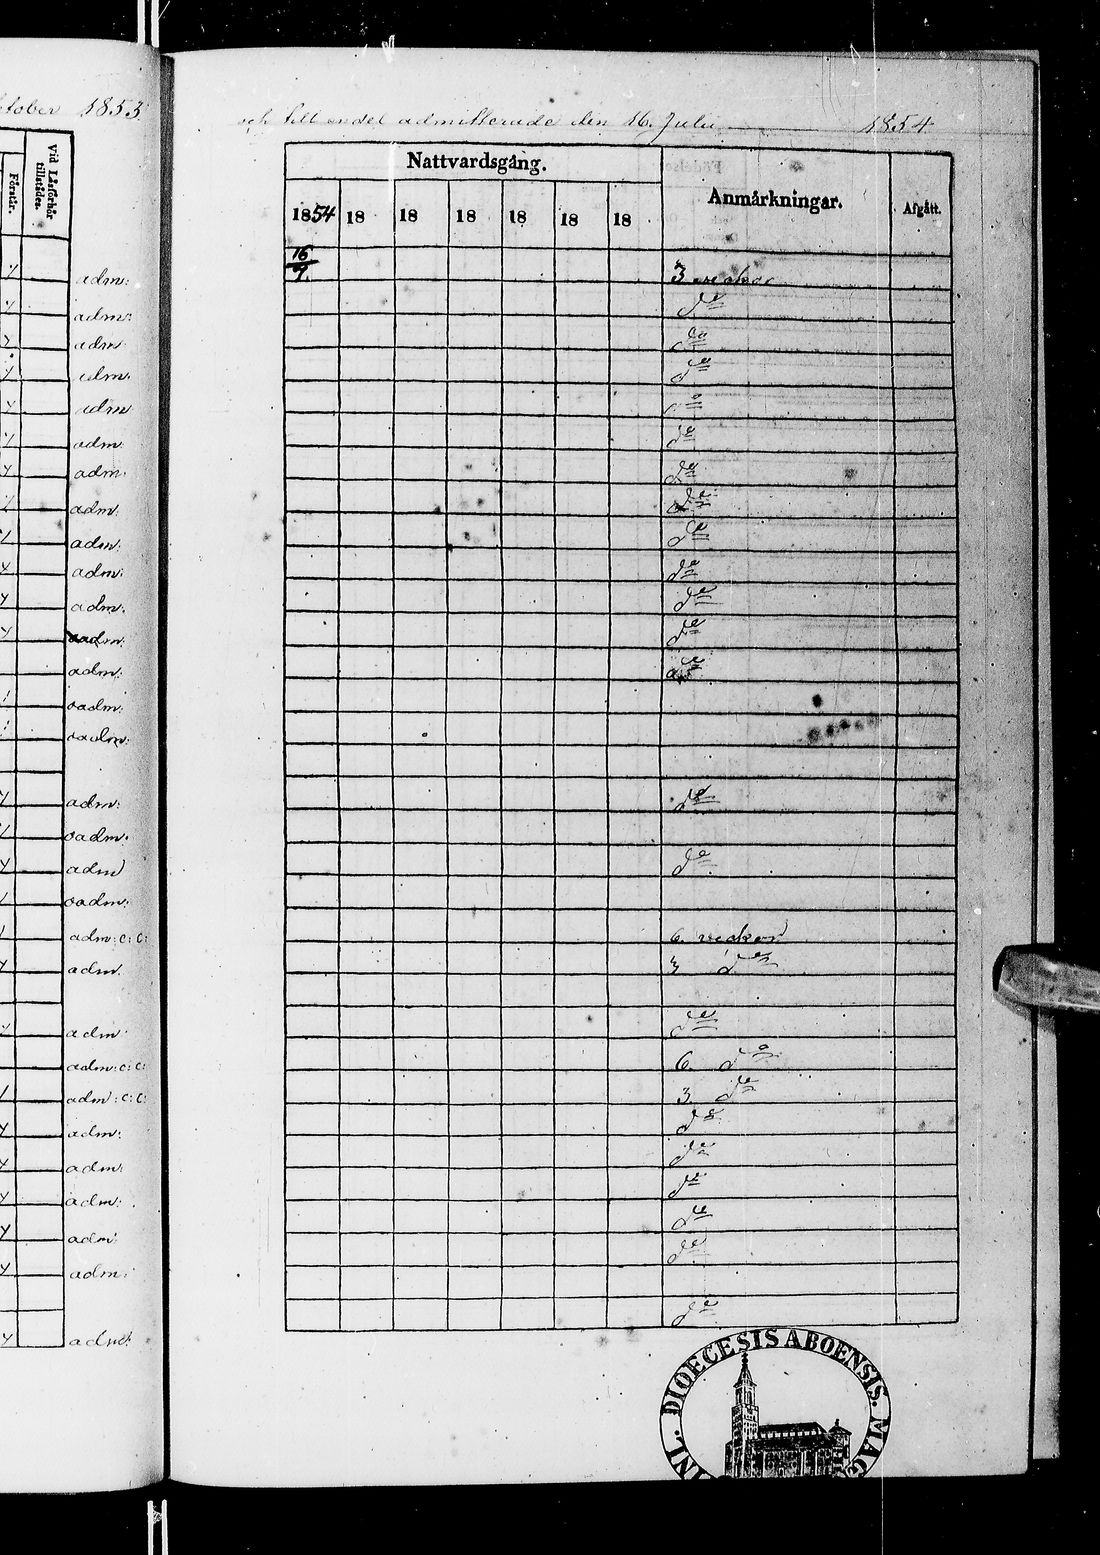 ktober 1853
Vid Låsförhör tillstådes.
Förstår.
adm:
adm:
adm
adm.
adm
adm:
adm:
adm:
adm:
adm:
adm:
adm:
adm:
oadm:
oadm:
adm:
oadm:
adm
oadm:
adm: c: c:
adm.
adm:
adm: c: c:
adm: c: c:
adm:
adm:
adm:
adm:
adm:
adm:
och till endel admitterade den 16. Julii 1854
Nattvardsgång. Anmårkningar. Afgått.
1854 18 18 18 18 18 18
16/7. 3 veckor
do
do
do
do
do
do
do
do
do
do
do
do
do
do
6. veckor
3 do
do
6. do
3. do
do
do
do
do
do
do
DIOECESIS ABOENSIS. MAG